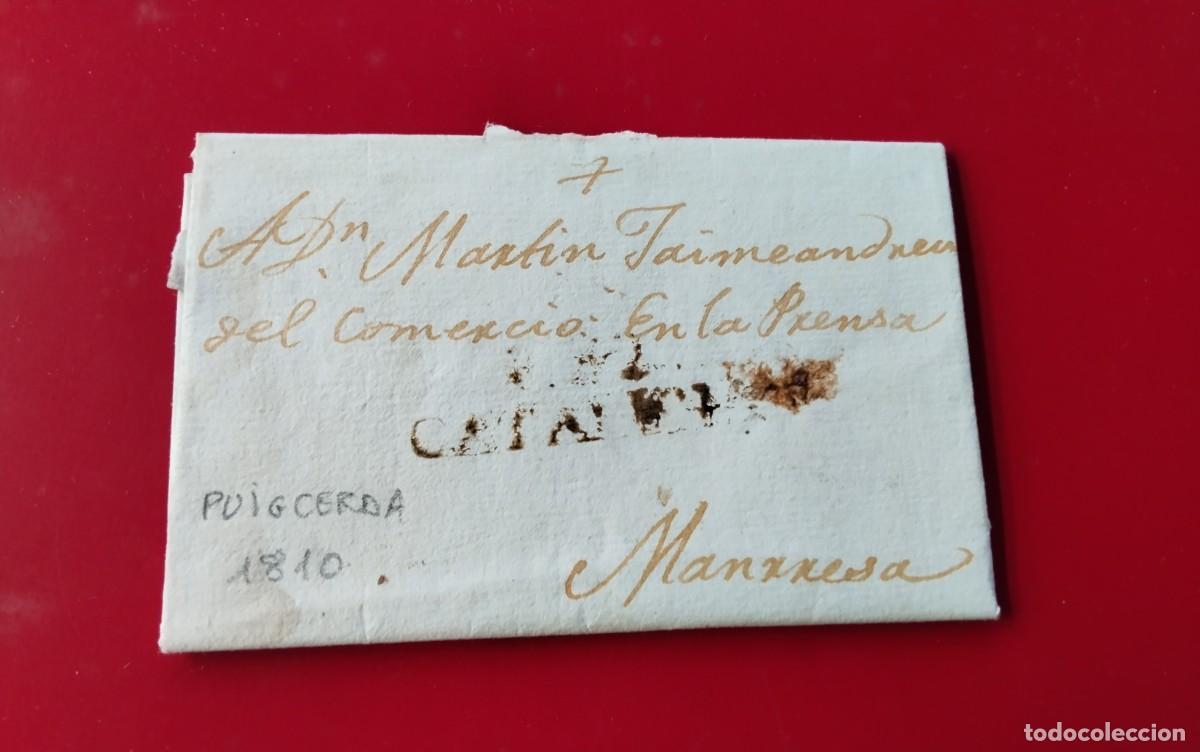 A Dn. Martin Jaimeandreu
del Comercio: En la Prensa
CATALUÑA
PUIGCERDA
1810
Manrresa
todocoleccion